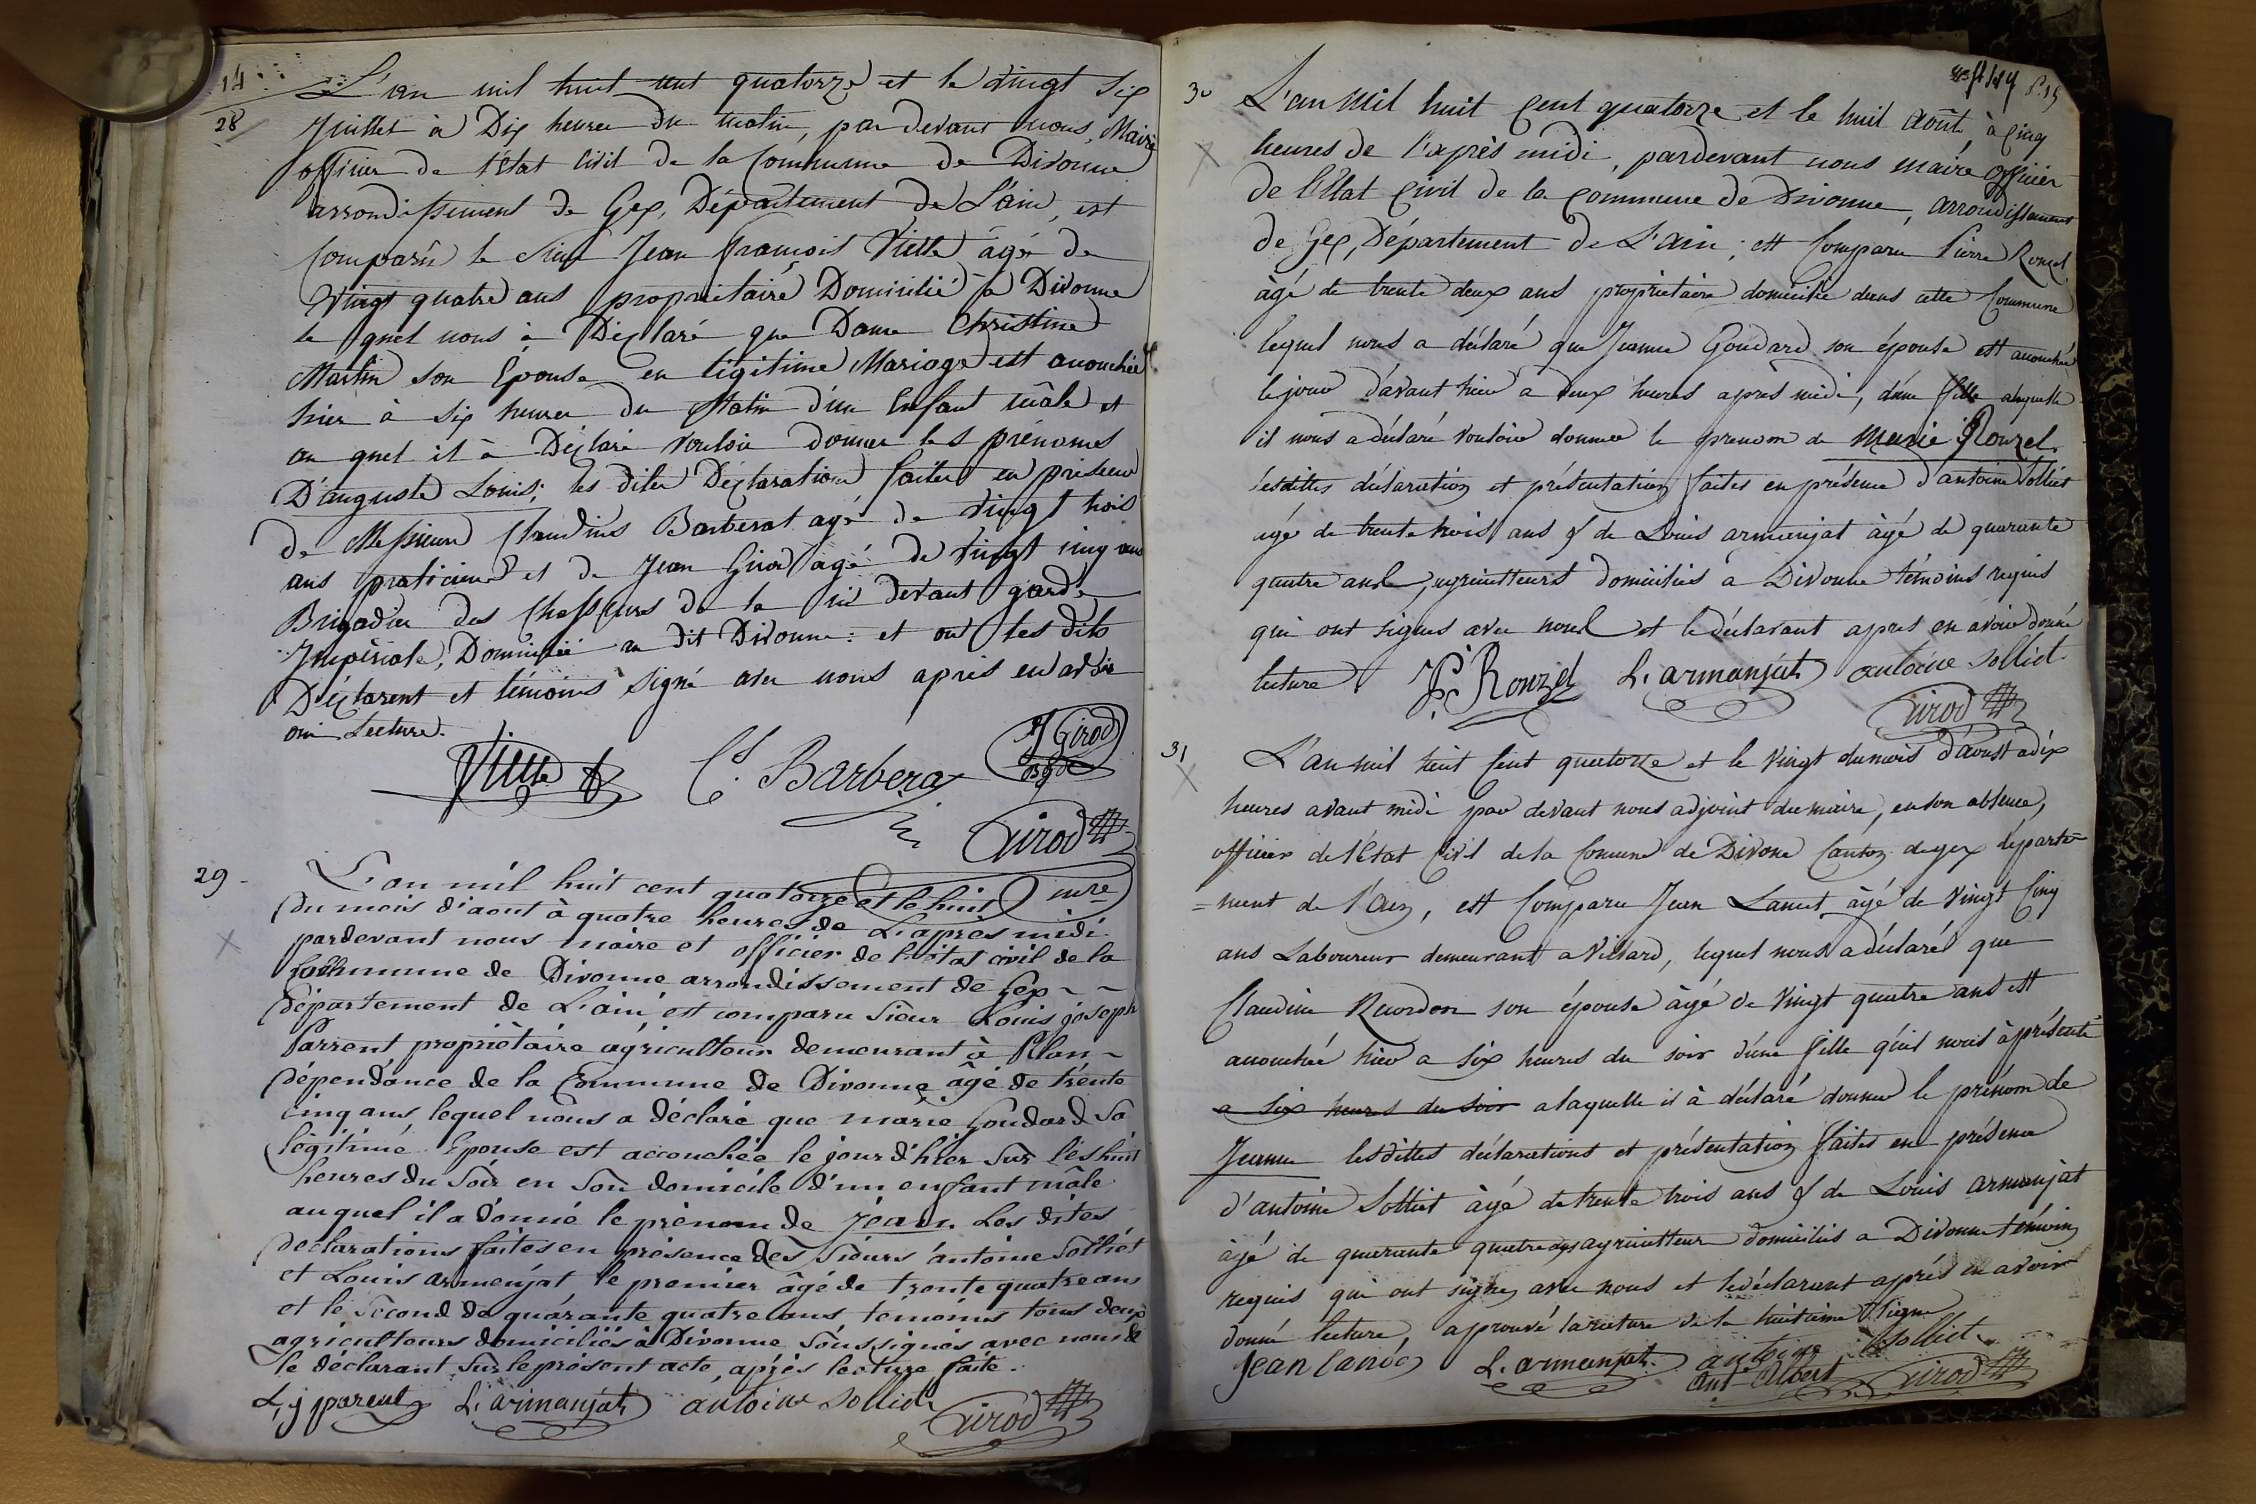 14
28
L'an mil huit cent quatorze et le vingt six
Juillet à Dix heures du matin, par devant nous, Maire
officier de l'Etat Civil de la Commune de Divonne
arrondissement de Gex, Département de L'ain, est
Comparû le Jean François Vielle âgé de
Vingt quatre ans propriétaire Domicilié à Divonne
le quel nous à Déclaré que Dame Christine
Martin son Épouse en légitime Mariage est accouchée
hier à six heures du Matin d'un Enfant mâle et
au quel il à Déclaré vouloir donner les prénoms
D'auguste Louis; les dites Déclaration faites en présence
de Messieurs Claudius Barberat agé de vingt trois
ans praticien et de Jean Girod agé de vingt cinq ans
Brigadier des Chasseurs de la ci devant garde
Impériale, Domicilié au dit Divonne: et ont les dits
Déclarent et témoins signé avec nous après en avoir
oui Lecture.
Vielle C. Barberat J Girod
Girod
mre
29
L'an mil huit cent quatorze et le huit
du mois d'aout à quatre heures de L'après midi
pardevant nous maire et officier de l'état civil de la
Commune de Divonne arrondissement de Gex
département de L'ain est comparu Sieur Louis joseph
Parrent propriètaire agriculteur demeurant à Plan
dépendance de la Commune de Divonne âgé de trente
cinq ans lequel nous a déclaré que marie Goudard Sa
légitime Epouse est accouchée le jour d'hier sur les huit
heures du Soir en Son domicile d'un enfant mâle
auquel il a donné le prènom de jean. Les dites
declarations faites en présence des Sieurs antoine Solliet
et Louis armenjat le premier âgé de trente quatre ans
et le Sécond de quarante quatre ans, témoins tous deux
agriculteurs domiciliés à Divonne Soussignés avec nous &
le déclarant Sur le présent acte, après lecture faite.
L. j parent L. armanjat antoine Solliet
Girod
30
L'an Mil huit Cent quatorze et le huit Août à Cinq
heures de l'après midi, pardevant nous maire officier
de l'État Civil de la Commune de Divonne, arrondissement
de Gex, Département de L'ain; est Comparu Pierre Rouzel
âgé de trente deux ans propriétaire domicilié dans cette Commune
lequel nous a déclaré que Jeanne Goudard son épouse est accouchée
le jour d'avant hier a deux heures après midi, d'une fille alaquelle
il nous a déclaré vouloir donner le prenom de Marie Rouzel
lesdittes déclaration et présentation faites en présence d'antoine Solliet
agé de trente trois ans & de Louis armenjat âgé de quarante
quatre ans, agriculteurs domiciliés a Divonne témoins requis
qui ont signés avec nous et le déclarant après en avoir donné
lecture P. Rouzel L. armanjat antoine Solliet
Girod
31
L'an mil huit Cent quatorze et le vingt du mois d'aoust a dix
heures avant midi par devant nous adjoint du maire, en son absence,
officier de l'État Civil de la Comune de Divone Canton de gex départe
=ment de l'ain, est Comparu Jean Lancet âgé de Vingt Cinq
ans Laboureur demeurant a Villard, lequel nous a déclaré que
Claudine Reverdon son épouse âgé de Vingt quatre ans est
accouchée hier a six heures du soir d'une fille qu'il nous à présenté
a six heures du soir alaquelle il à déclaré donner le prénom de
Jeanne lesdittes déclarations et présentation faites en présence
d'antoine Solliet âgé de trente trois ans & de Louis armenjat
âgé de quarante quatre ans agriculteur domiciliés a Divonne témoins
requis qui ont signés avec nous et le déclarant après en avoir
donné lecture, aprouvé la rature de la huitième ligne
jean L. armanjat antoine Solliet
Ant Albert Girod